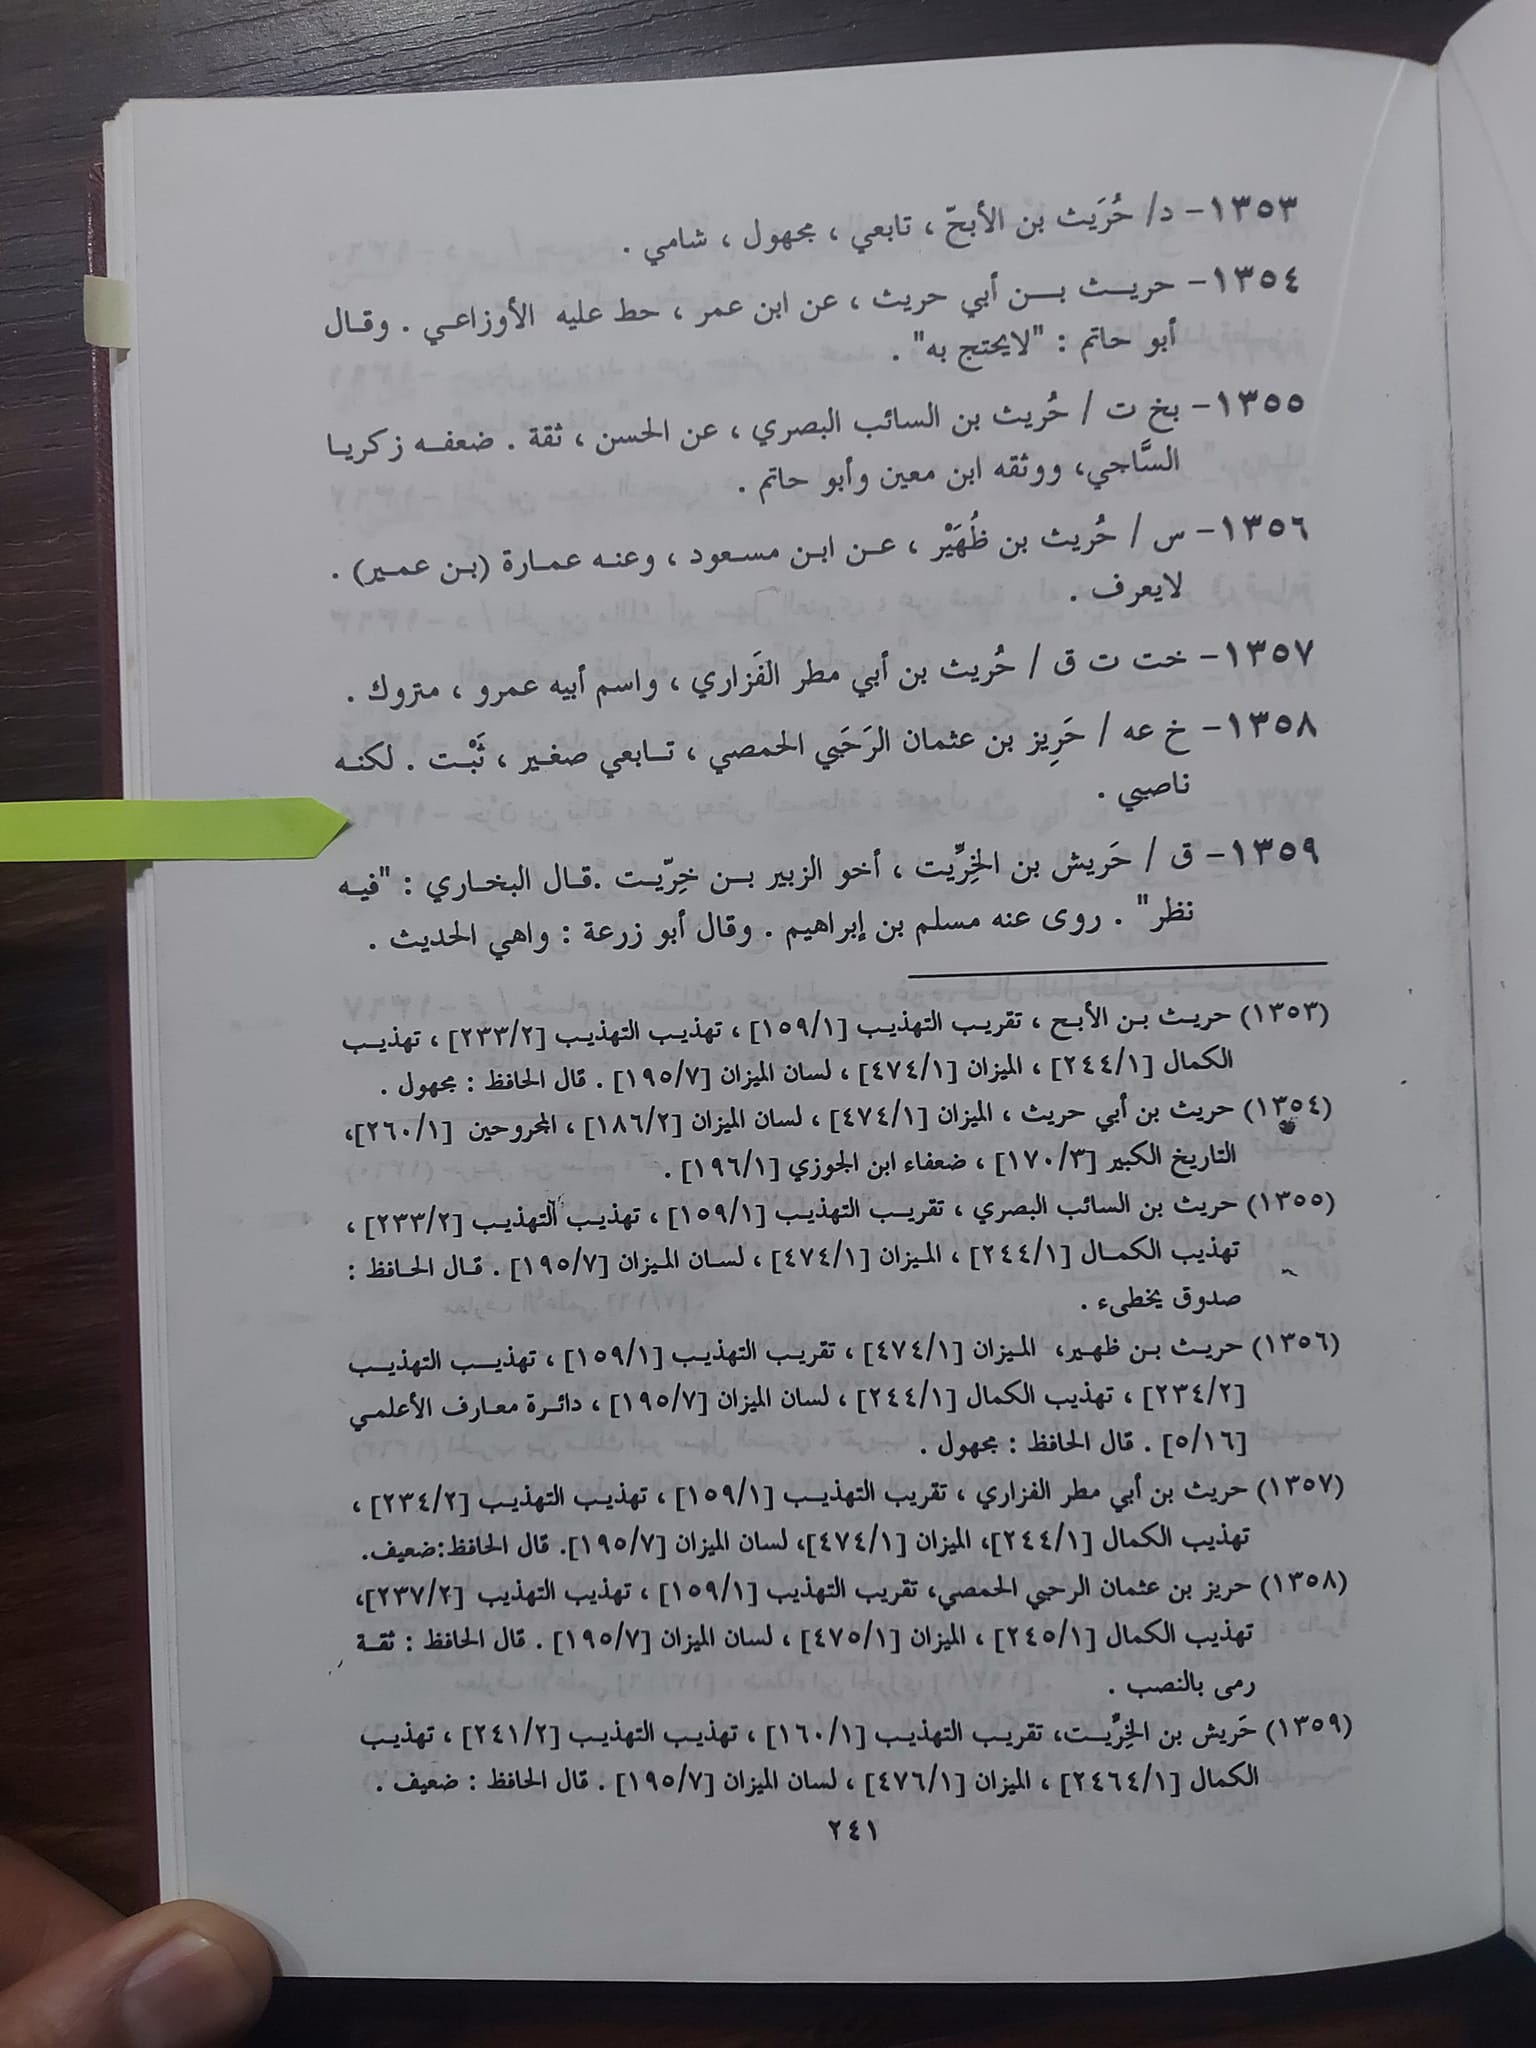 ١٣٥٣- د/ حُرَيَث بن الأبحّ ، تابعي ، مجهول ، شامي .
١٣٥٤- حريـث بـن أبي حريث ، عن ابن عمر ، حط عليه الأوزاعـي . وقـال
أبو حاتم : "لايحتج به" .
١٣٥٥- بخ ت / حُريث بن السائب البصري ، عن الحسن ، ثقة . ضعفـه زكريـا
السَّاجي، ووثقه ابن معين وأبو حاتم .
١٣٥٦- س / حُريث بن ظُهَيْر ، عـن ابـن مسـعود ، وعنـه عمـارة (بـن عمـير) .
لايعرف .
١٣٥٧- خت ت ق / حُريث بن أبي مطر الفَزاري ، واسم أبيه عمرو ، متروك .
١٣٥٨- خ عه / حَرِيز بن عثمان الرَحَبي الحمصي ، تـابعي صغـير ، ثَبْـت . لكنـه
ناصبي .
١٣٥٩- ق / حَريش بن الخِرِّيت ، أخو الزبير بـن خِرّيـت .قـال البخـاري : "فيـه
نظر" . روى عنه مسلم بن إبراهيم . وقال أبو زرعة : واهي الحديث .
(١٣٥٣) حريـث بـن الأبـح ، تقريـب التهذيـب [١٥٩/١] ، تهذيـب التهذيـب [٢٣٣/٢] ، تهذيـب
الكمال [٢٤٤/١] ، الميزان [٤٧٤/١] ، لسان الميزان [١٩٥/٧] . قال الحافظ : مجهول .
(١٣٥٤) حريث بن أبي حريث ، الميزان [٤٧٤/١] ، لسان الميزان [١٨٦/٢] ، المجروحين [٢٦٠/١]،
التاريخ الكبير [١٧٠/٣] ، ضعفاء ابن الجوزي [١٩٦/١] .
(١٣٥٥) حريث بن السائب البصري ، تقريـب التهذيـب [١٥٩/١] ، تهذيـب التهذيـب [٢٣٣/٢] ،
تهذيب الكمـال [٢٤٤/١] ، المـيزان [٤٧٤/١] ، لسـان المـيزان [١٩٥/٧] . قـال الحـافظ :
صدوق يخطىء .
(١٣٥٦) حريـث بـن ظهـير، المـيزان [٤٧٤/١] ، تقريـب التهذيـب [١٥٩/١] ، تهذيـب التهذيـب
[٢٣٤/٢] ، تهذيب الكمال [٢٤٤/١] ، لسان الميزان [١٩٥/٧] ، دائـرة معـارف الأعلمـي
[٥/١٦] . قال الحافظ : مجهول .
(١٣٥٧) حريث بن أبي مطر الفزاري ، تقريب التهذيـب [١٥٩/١] ، تهذيـب التهذيـب [٢٣٤/٢] ،
تهذيب الكمال [٢٤٤/١]، الميزان [٤٧٤/١]، لسان الميزان [١٩٥/٧]. قال الحافظ:ضعيف.
(١٣٥٨) حريز بن عثمان الرحبي الحمصي، تقريب التهذيب [١٥٩/١] ، تهذيب التهذيب [٢٣٧/٢]،
تهذيب الكمال [٢٤٥/١] ، الميزان [٤٧٥/١] ، لسان الميزان [١٩٥/٧] . قال الحافظ : ثقـة
رمى بالنصب .
(١٣٥٩) حَريش بن الخِرِّيـت، تقريب التهذيب [١٦٠/١] ، تهذيب التهذيب [٢٤١/٢] ، تهذيب
الكمال [٢٤٦٤/١] ، الميزان [٤٧٦/١] ، لسان الميزان [١٩٥/٧] . قال الحافظ : ضعيف .
٢٤١